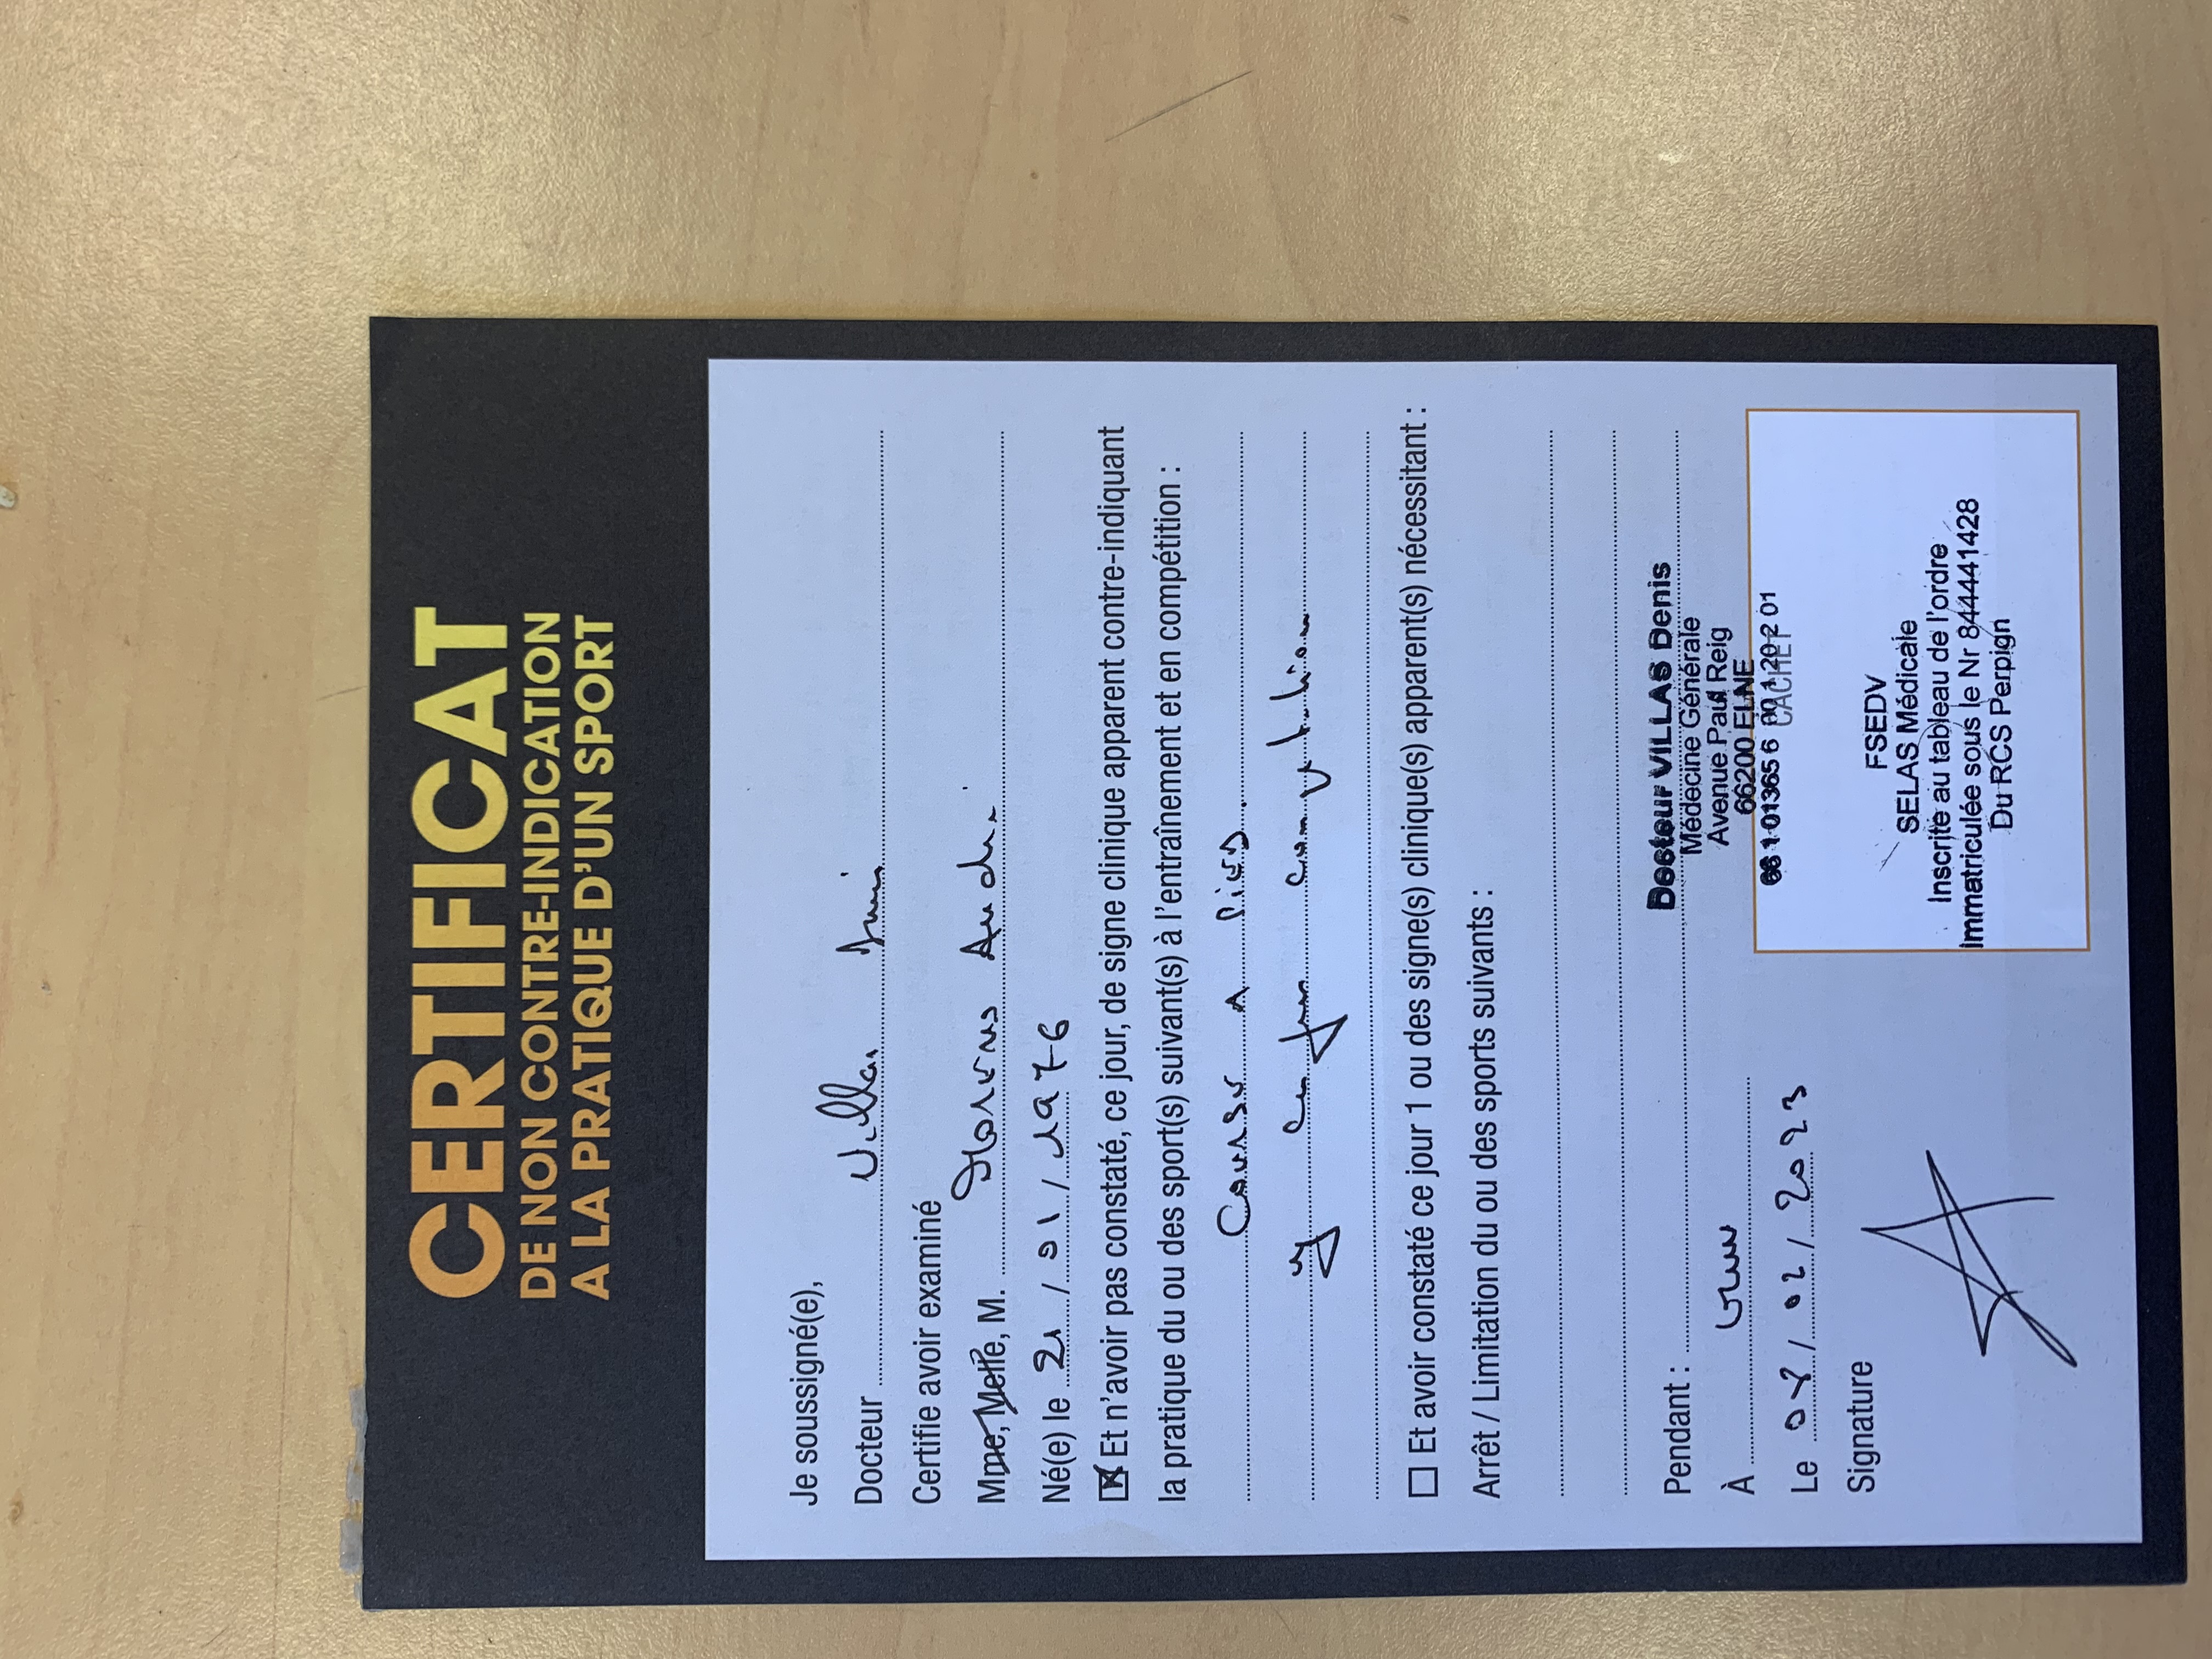 CERTIFICAT
DE NON CONTRE-INDICATION
A LA PRATIQUE D'UN SPORT
Je soussigné(e),
Docteur Villas Denis
Certifie avoir examiné
Mme, Melle, M.
Né(e) le 21 / 01 / 1976
Et n'avoir pas constaté, ce jour, de signe clinique apparent contre-indiquant
la pratique du ou des sport(s) suivant(s) à l'entraînement et en compétition :
Course a pieds.
y compris compétition
Et avoir constaté ce jour 1 ou des signe(s) clinique(s) apparent(s) nécessitant :
Arrêt / Limitation du ou des sports suivants :
Pendant :
À
Le 08 / 02 / 2023
Signature
Docteur VILLAS Denis
Médecine Générale
Avenue Paul Reig
66200 ELNE
66 1 01365 6 00 1 20 2 01
CACHET
FSEDV
SELAS Médicale
Inscrite au tableau de l'ordre
Immatriculée sous le Nr 844441428
Du RCS Perpign